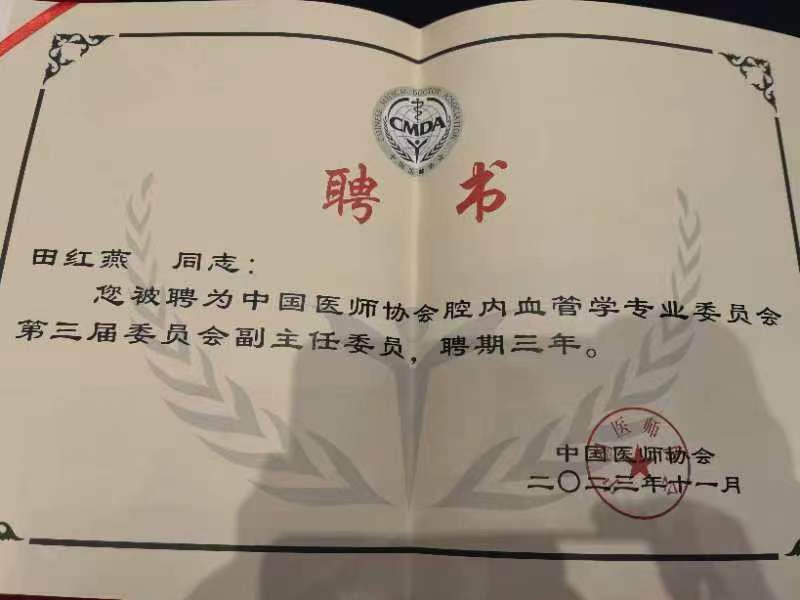 CHINESE MEDICAL DOCTOR ASSOCIATION
CMDA
中国医师协会
聘书
田红燕 同志：
您被聘为中国医师协会腔内血管学专业委员会
第三届委员会副主任委员，聘期三年。
医师
中国医师协会
二〇二三年十一月